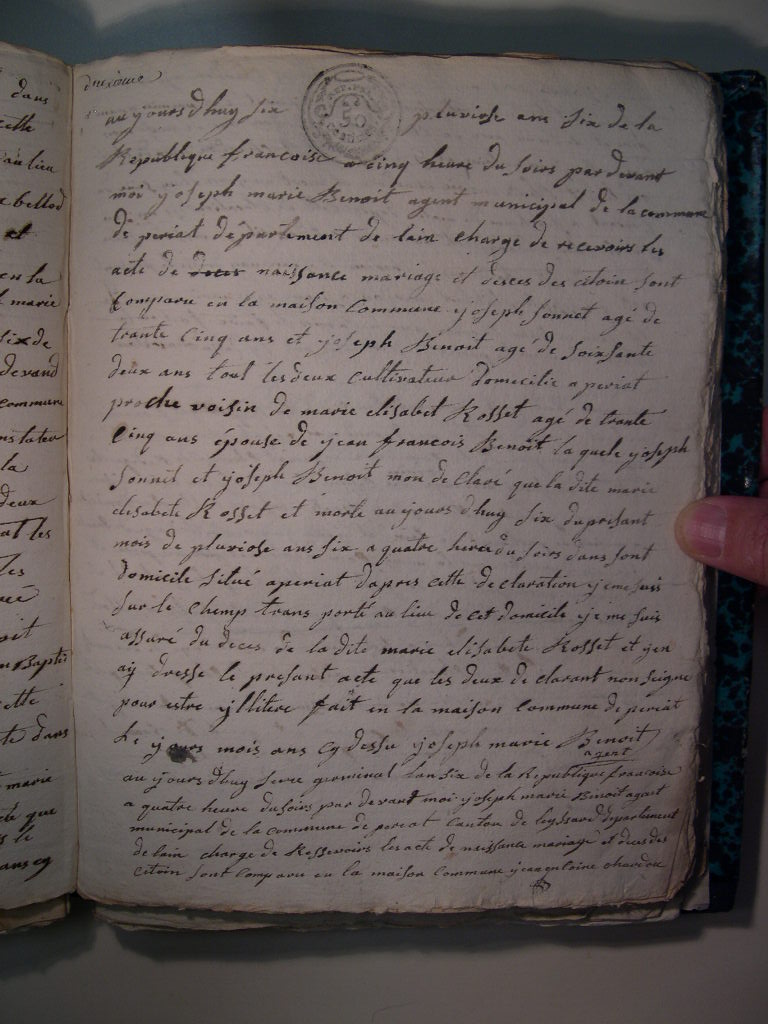 dans
cette
au lieu
bellod
et
en la
marie
six de
devand
commune
la
deux
les
Baptis
cette
dans
marie
que
le
ans cy
deuxieme
50
au jours dhuy six pluviose ans six de la
Republique francoise a cinq heure du soirs par devant
moi joseph marie Benoit agent municipal de la commune
de periat département de lain charge de recevoirs les
acte de deces naissance mariage et desces des citoin sont
Comparu en la maison Commune joseph sonnet agé de
trante Cinq ans et joseph Benoit agé de soixsante
deux ans tout les deux Cultivateur domicilie a periat
proche voisin de marie elisabet Rosset agé de trante
Cinq ans épouse de jean francois Benoit la quele joseph
sonnit et joseph Benoit mon de Claré que la dite marie
elisabete Rosset et morte au jours dhuy six du presant
mois de pluviose ans six a quatre heure du soirs dans sont
Domicile situé a periat dapres cette de claration je me suis
sur le Chemp trans porté au lieu de cet domicile je me suis
assuré du deces de la dite marie elisabete Rosset et jen
aij dresse le presant acte que les deux de clarant non seigne
pour estre jllitere fait en la maison Commune de periat
Le jours mois ans cy dessu joseph marie Benoit
agent
au jours dhuy germinal lan six de la Republique francoise
a quatre heure du soirs par devant moi joseph marie Benoit agent
municipal de la commune de periat Canton de leyssard departement
de lain charge de Ressevoirs les acte de naissance mariage et deces des
Citoin sont Comparu en la maison Commune jean entoine chardon